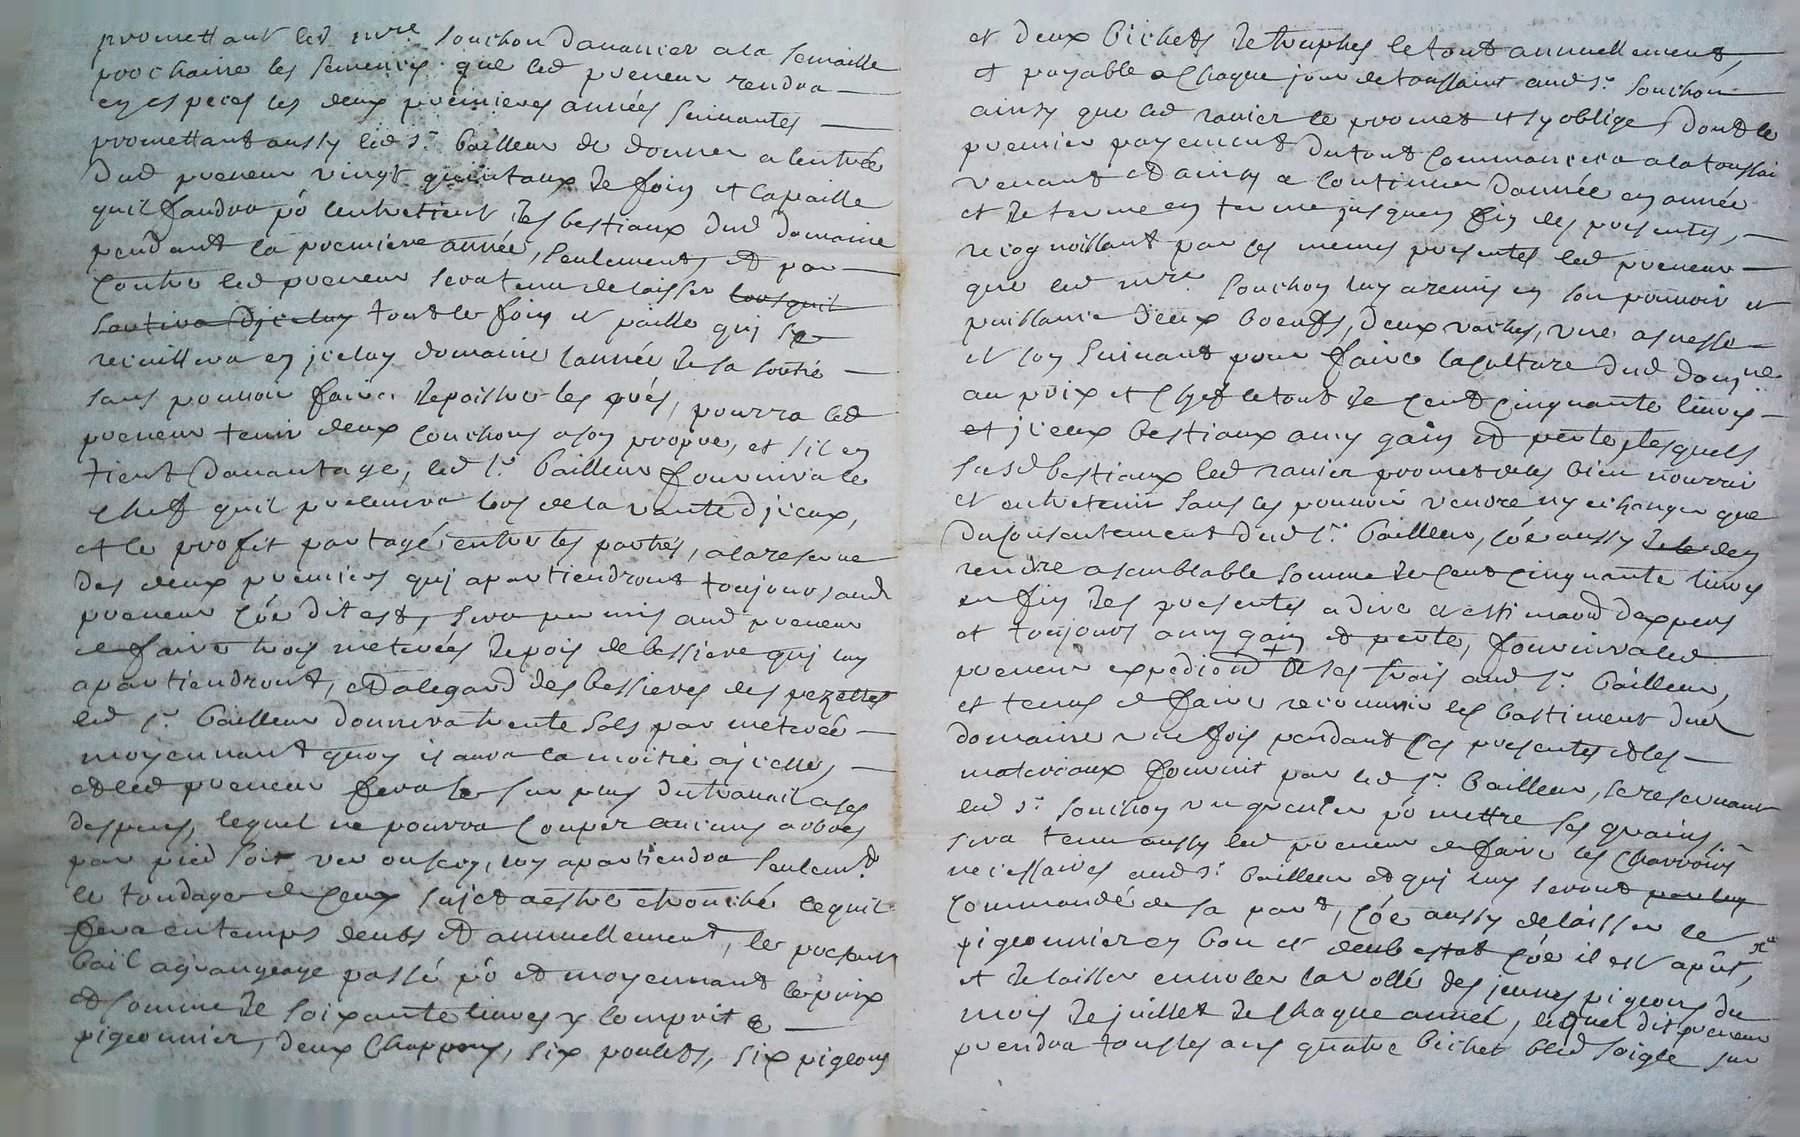 promettant led mre Souchon davancer a la semaille
prochaine les semences que led preneur rendra
en especes les deux premieres années suivantes
promettant aussy led sr bailleur de donner a lentrée
dud preneur vingt quintaux de foin et la paille
quil faudra po lentretient des bestiaux dud domaine
pendant la premiere année, seulement, et par
contre led preneur sera tenu de laisser lors quil
sortira djceluy tout le foin et paille qui se
recuillera en jceluy domaine lannée de sa sortie
sans pouvoir faire depaistre les prés, pourra led
preneur tenir deux couchons a son propre, et sil en
tient davantage, led sr bailleur fournira le
chef quil prelevera lors de la vante djceux,
et le profit partagé entre les parties, a la reserve
des deux premiers qui apartiendront toujours aud
preneur coe dit est, sera permis aud preneur
de faire trois meterées de pois de bessiere qui luy
apartiendront, et alegard des bessieres des pezettes
led sr bailleur donnera trente sols par meterée
moyennant quoy il aura la moitié djcelles,
et led preneur fera le surplus du travail a ses
despens, lequel ne pourra couper aucuns arbres
par pied soit ver ou secq, luy apartiendra seulemt
le tondage de ceux sujet a estre etronché ce quil
fera en temps deubs et annuellement, le present
bail a grangeage passé po et moyennant le prix
et somme de soixante livres y comprit le
pigeonnier, deux chappons, six poulets, six pigeons
et deux bichets de truphes le tout annuellement
et payable a chaque jour de toussaint aud sr Souchon
ainsy que led ranier le promet et sy oblige, dont le
premier payement du tout commancera a la toussai
venant et ainsy a continuer dannée en année
et de terme en terme jusques fin des presentes,
recognoissant par ces memes presentes led preneur
que led mre Souchon luy a remis en son pouvoir et
puissance deux boeufs, deux vaches, une asnesse
et son suivant pour faire la culture dud domne
au prix et chef le tout de cent cinquante livres
et jceux bestiaux a my gain et perte, lesquels
susd bestiaux led ranier promet de les bien nourrir
et entretenir sans les pouvoir vendre ny echanger que
du consentement dud sr bailleur, coe aussy den
rendre a semblable somme de cent cinquante livres
en fin des presentes a dire et estimaon dexpers
et toujours a my gain et perte, fournira led
preneur expedion de ses frais aud sr bailleur,
et tenus de faire recouvrir les bastiment dud
domaine une fois pendant ces presentes et les
materiaux fournit par led sr bailleur, se reservant
led sr Souchon un grenier po mettre ses grains,
sera tenu aussy led preneur de faire les charrois
necessaires aud sr bailleur et qui luy seront par luy
commandé de sa part, coe aussy de laisser le
pigeonnier en bon et deub estat coe il est apnt,
et de laisser envoler la vollée des jeunes pigeons du
mois de juillet de chaque année, lequel dit preneur
prendra tous les ans quatre bichet bled soigle sur